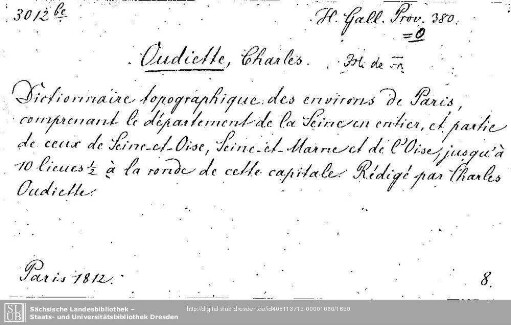 3012 be H. Gall. Prov. 380.
=0
Oudiette, Charles.
Dictionnaire topographique des environs de Paris,
comprenant le département de la Seine en entier, et partie
de ceux de Seine-et-Oise, Seine-et-Marne et de l'Oise, jusqu'à
10 lieues ½ à la ronde de cette capitale. Rédigé par Charles
Oudiette.
Paris 1812. 8.
Sächsische Landesbibliothek –
Staats- und Universitätsbibliothek Dresden